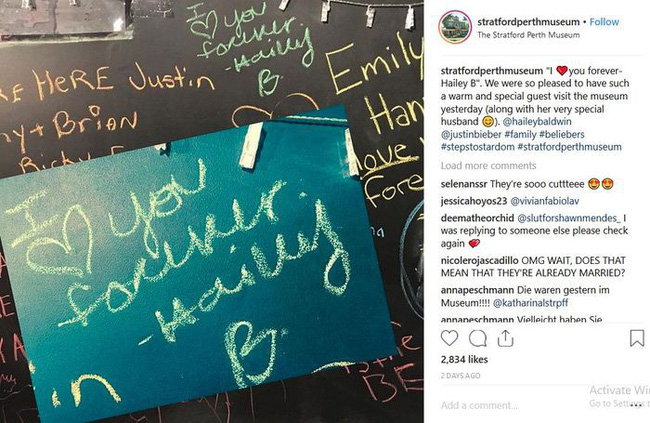 I ♡ you
forever
-Hailey
B.
RE HERE Justin
ny + BriAN
Ricky
Emily
Han
love
Fore
I ♡ you
forever
-Hailey
B.
in
BE
stratfordperthmuseum • Follow
The Stratford Perth Museum
stratfordperthmuseum "I ❤️you forever-
Hailey B". We were so pleased to have such
a warm and special guest visit the museum
yesterday (along with her very special
husband 😊). @haileybaldwin
@justinbieber #family #beliebers
#stepstostardom #stratfordperthmuseum
Load more comments
selenanssr They're sooo cuttteee 😍😍
jessicahoyos23 @vivianfabiolav
deematheorchid @slutforshawnmendes_ I
was replying to someone else please check
again 💓
nicolerojascadillo OMG WAIT, DOES THAT
MEAN THAT THEY'RE ALREADY MARRIED?
annapeschmann Die waren gestern im
Museum!!!! @katharinalstrpff
annapeschmann Vielleicht haben Sie
2,834 likes
2 DAYS AGO
Add a comment...
Activate Wi
Go to Settings t